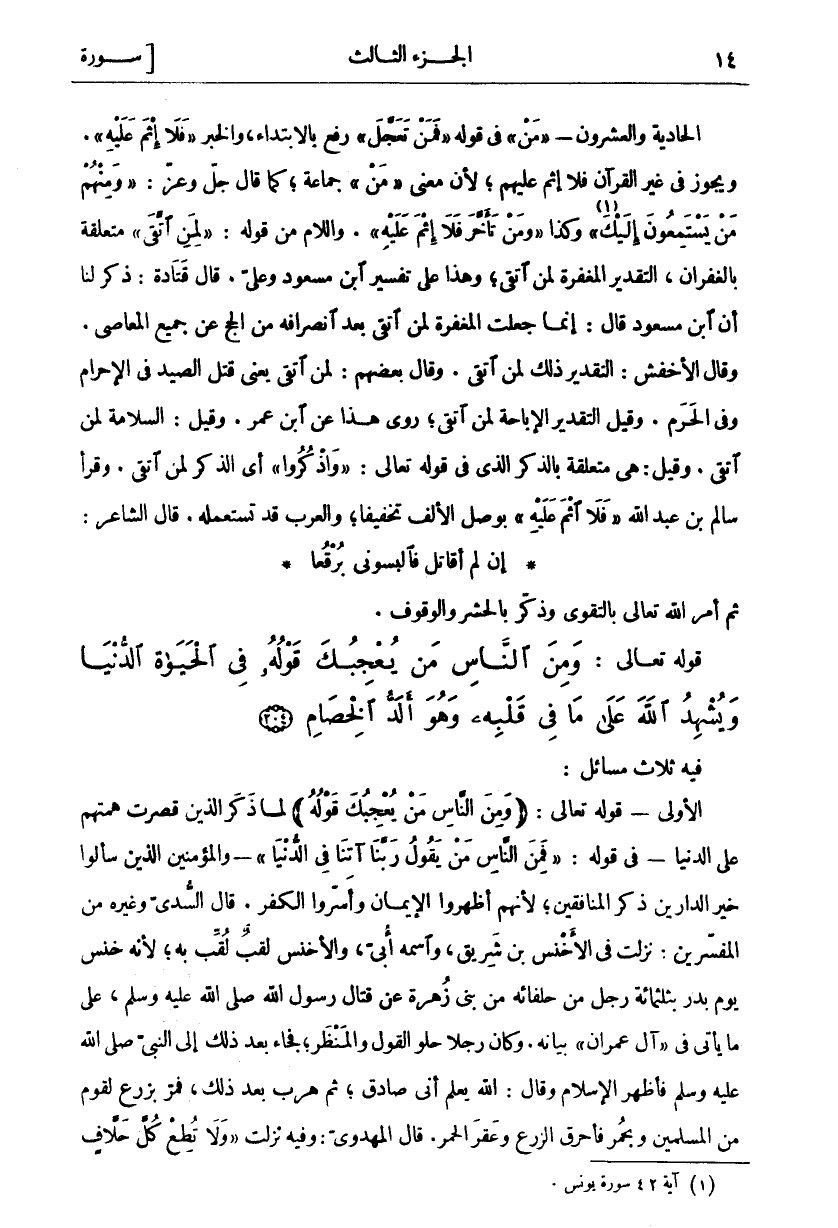 ١٤ الجـزء الثـالث [ســورة
الحادية والعشرون — «مَنْ» فى قوله «فَمَنْ تَعَجَّلَ» رفع بالابتداء، والخبر «فَلَا إِثْمَ عَلَيْهِ» .
ويجوز فى غير القرآن فلا إثم عليهم ؛ لأن معنى « مَنْ » جماعة ؛ كما قال جلّ وعزّ : « وَمِنْهُمْ
مَنْ يَسْتَمِعُونَ إِلَيْكَ» (١) وكذا «ومَنْ تَأَخَّرَ فَلَا إِثْمَ عَلَيْهِ» . واللام من قوله : «لِمَنِ ٱتَّقَى» متعلقة
بالغفران ، التقدير المغفرة لمن ٱتقى ؛ وهذا على تفسير ٱبن مسعود وعلىّ . قال قَتَادة : ذكر لنا
أن ٱبن مسعود قال : إنمـا جعلت المغفرة لمن ٱتقى بعد ٱنصرافه من الحج عن جميع المعاصى .
وقال الأخفش : التقدير ذلك لمن ٱتقى . وقال بعضهم : لمن ٱتقى يعنى قتل الصيد فى الإحرام
وفى الحَرَم . وقيل التقدير الإباحة لمن ٱتقى ؛ روى هـذا عن ٱبن عمر . وقيل : السلامة لمن
ٱتقى . وقيل : هى متعلقة بالذكر الذى فى قوله تعالى : «وَٱذْكُرُوا» أى الذكر لمن ٱتقى . وقرأ
سالم بن عبد الله « فَلَا ٱثْمَ عَلَيْهِ » بوصل الألف تخفيفا؛ والعرب قد تستعمله . قال الشاعر :
* إن لم أقاتل فٱلبسونى بُرْقُعا *
ثم أمر الله تعالى بالتقوى وذكّر بالحشر والوقوف .
قوله تعـالى : وَمِنَ ٱلنَّـاسِ مَن يُعْجِبُـكَ قَوْلُهُۥ فِى ٱلْحَيَوٰةِ ٱلدُّنْيَـا
وَيُشْهِدُ ٱللَّهَ عَلَىٰ مَا فِى قَلْبِهِۦ وَهُوَ أَلَدُّ ٱلْخِصَامِ ﴿٢٠٤﴾
فيه ثلاث مسائل :
الأولى — قوله تعالى : ﴿ وَمِنَ النَّاسِ مَنْ يُعْجِبُكَ قَوْلُهُ ﴾ لمـا ذَكَر الذين قصرت همتهم
على الدنيا — فى قوله : « فَمِنَ النَّاسِ مَنْ يَقُولُ رَبَّنَا آتِنَا فِى الدُّنْيَا » — والمؤمنين الذين سألوا
خير الدارين ذكر المنافقين ؛ لأنهم أظهروا الإيمـان وأسرّوا الكفر . قال السُّدىّ وغيره من
المفسّرين : نزلت فى الأَخْنس بن شَرِيق ، وٱسمه أُبىّ ، والأخنس لقبٌ لُقِّب به ؛ لأنه خنس
يوم بدر بثلثمائة رجل من حلفائه من بنى زُهرة عن قتال رسول الله صلى الله عليه وسلم ، على
ما يأتى فى «آل عمران» بيانه . وكان رجلا حلو القول والمَنْظَر ؛ فجاء بعد ذلك إلى النبىّ صلى الله
عليه وسلم فأظهر الإسلام وقال : الله يعلم أنى صادق ؛ ثم هرب بعد ذلك ، فمرّ بزرع لقوم
من المسلمين وبحُمُر فأحرق الزرع وعَقَر الحمر. قال المهدوىّ : وفيه نزلت «وَلَا تُطِعْ كُلَّ حَلَّافٍ
(١) آية ٤٢ سورة يونس .